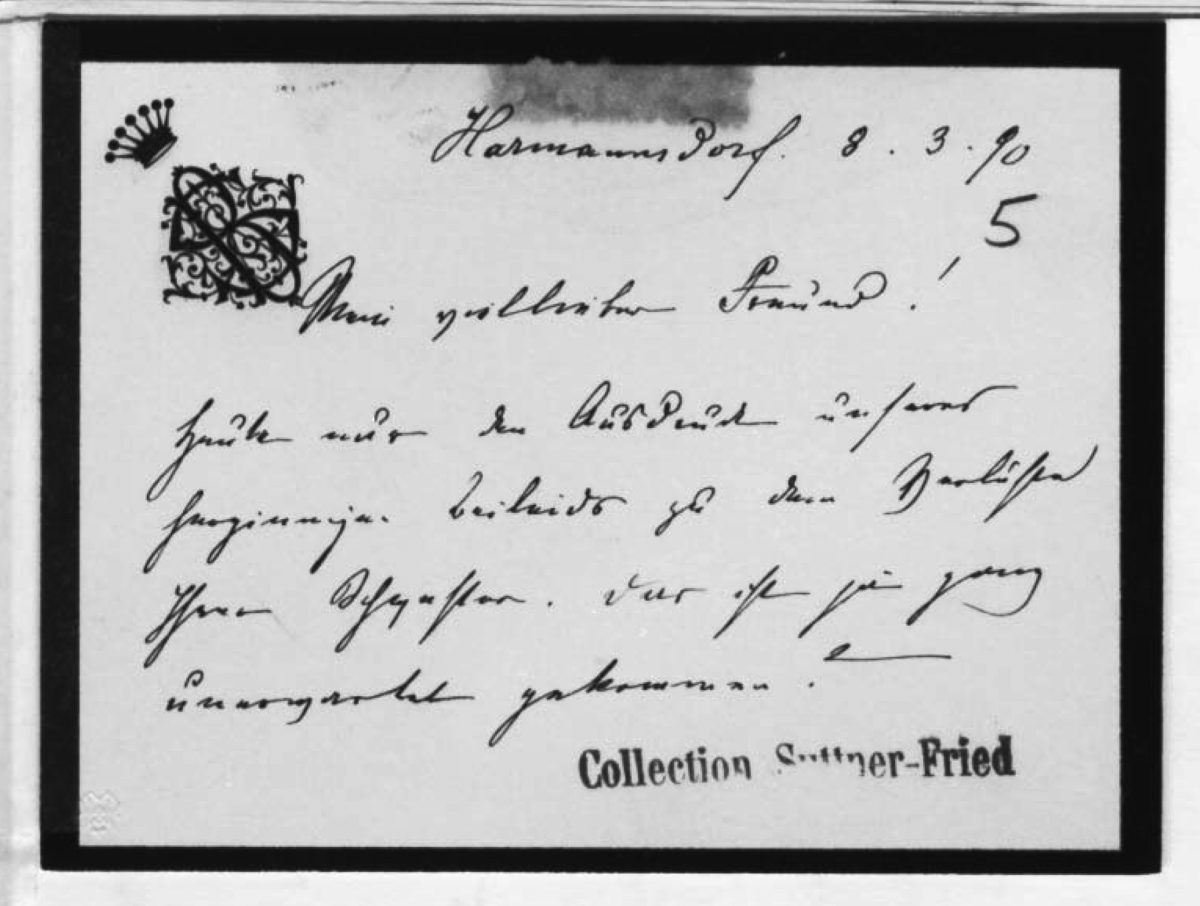 Harmannsdorf. 8. 3. 90
5
Mein vielliber Freund!
Heute nur den Ausdruck unseres
herzinnigen Beileids zu dem Verluste
Ihrer Schwester. Das ist ja ganz
unerwartet gekommen.
Collection Suttner-Fried